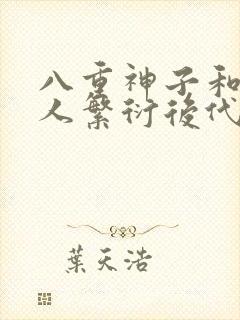 八重神子和
人繁衍後代
葉天浩